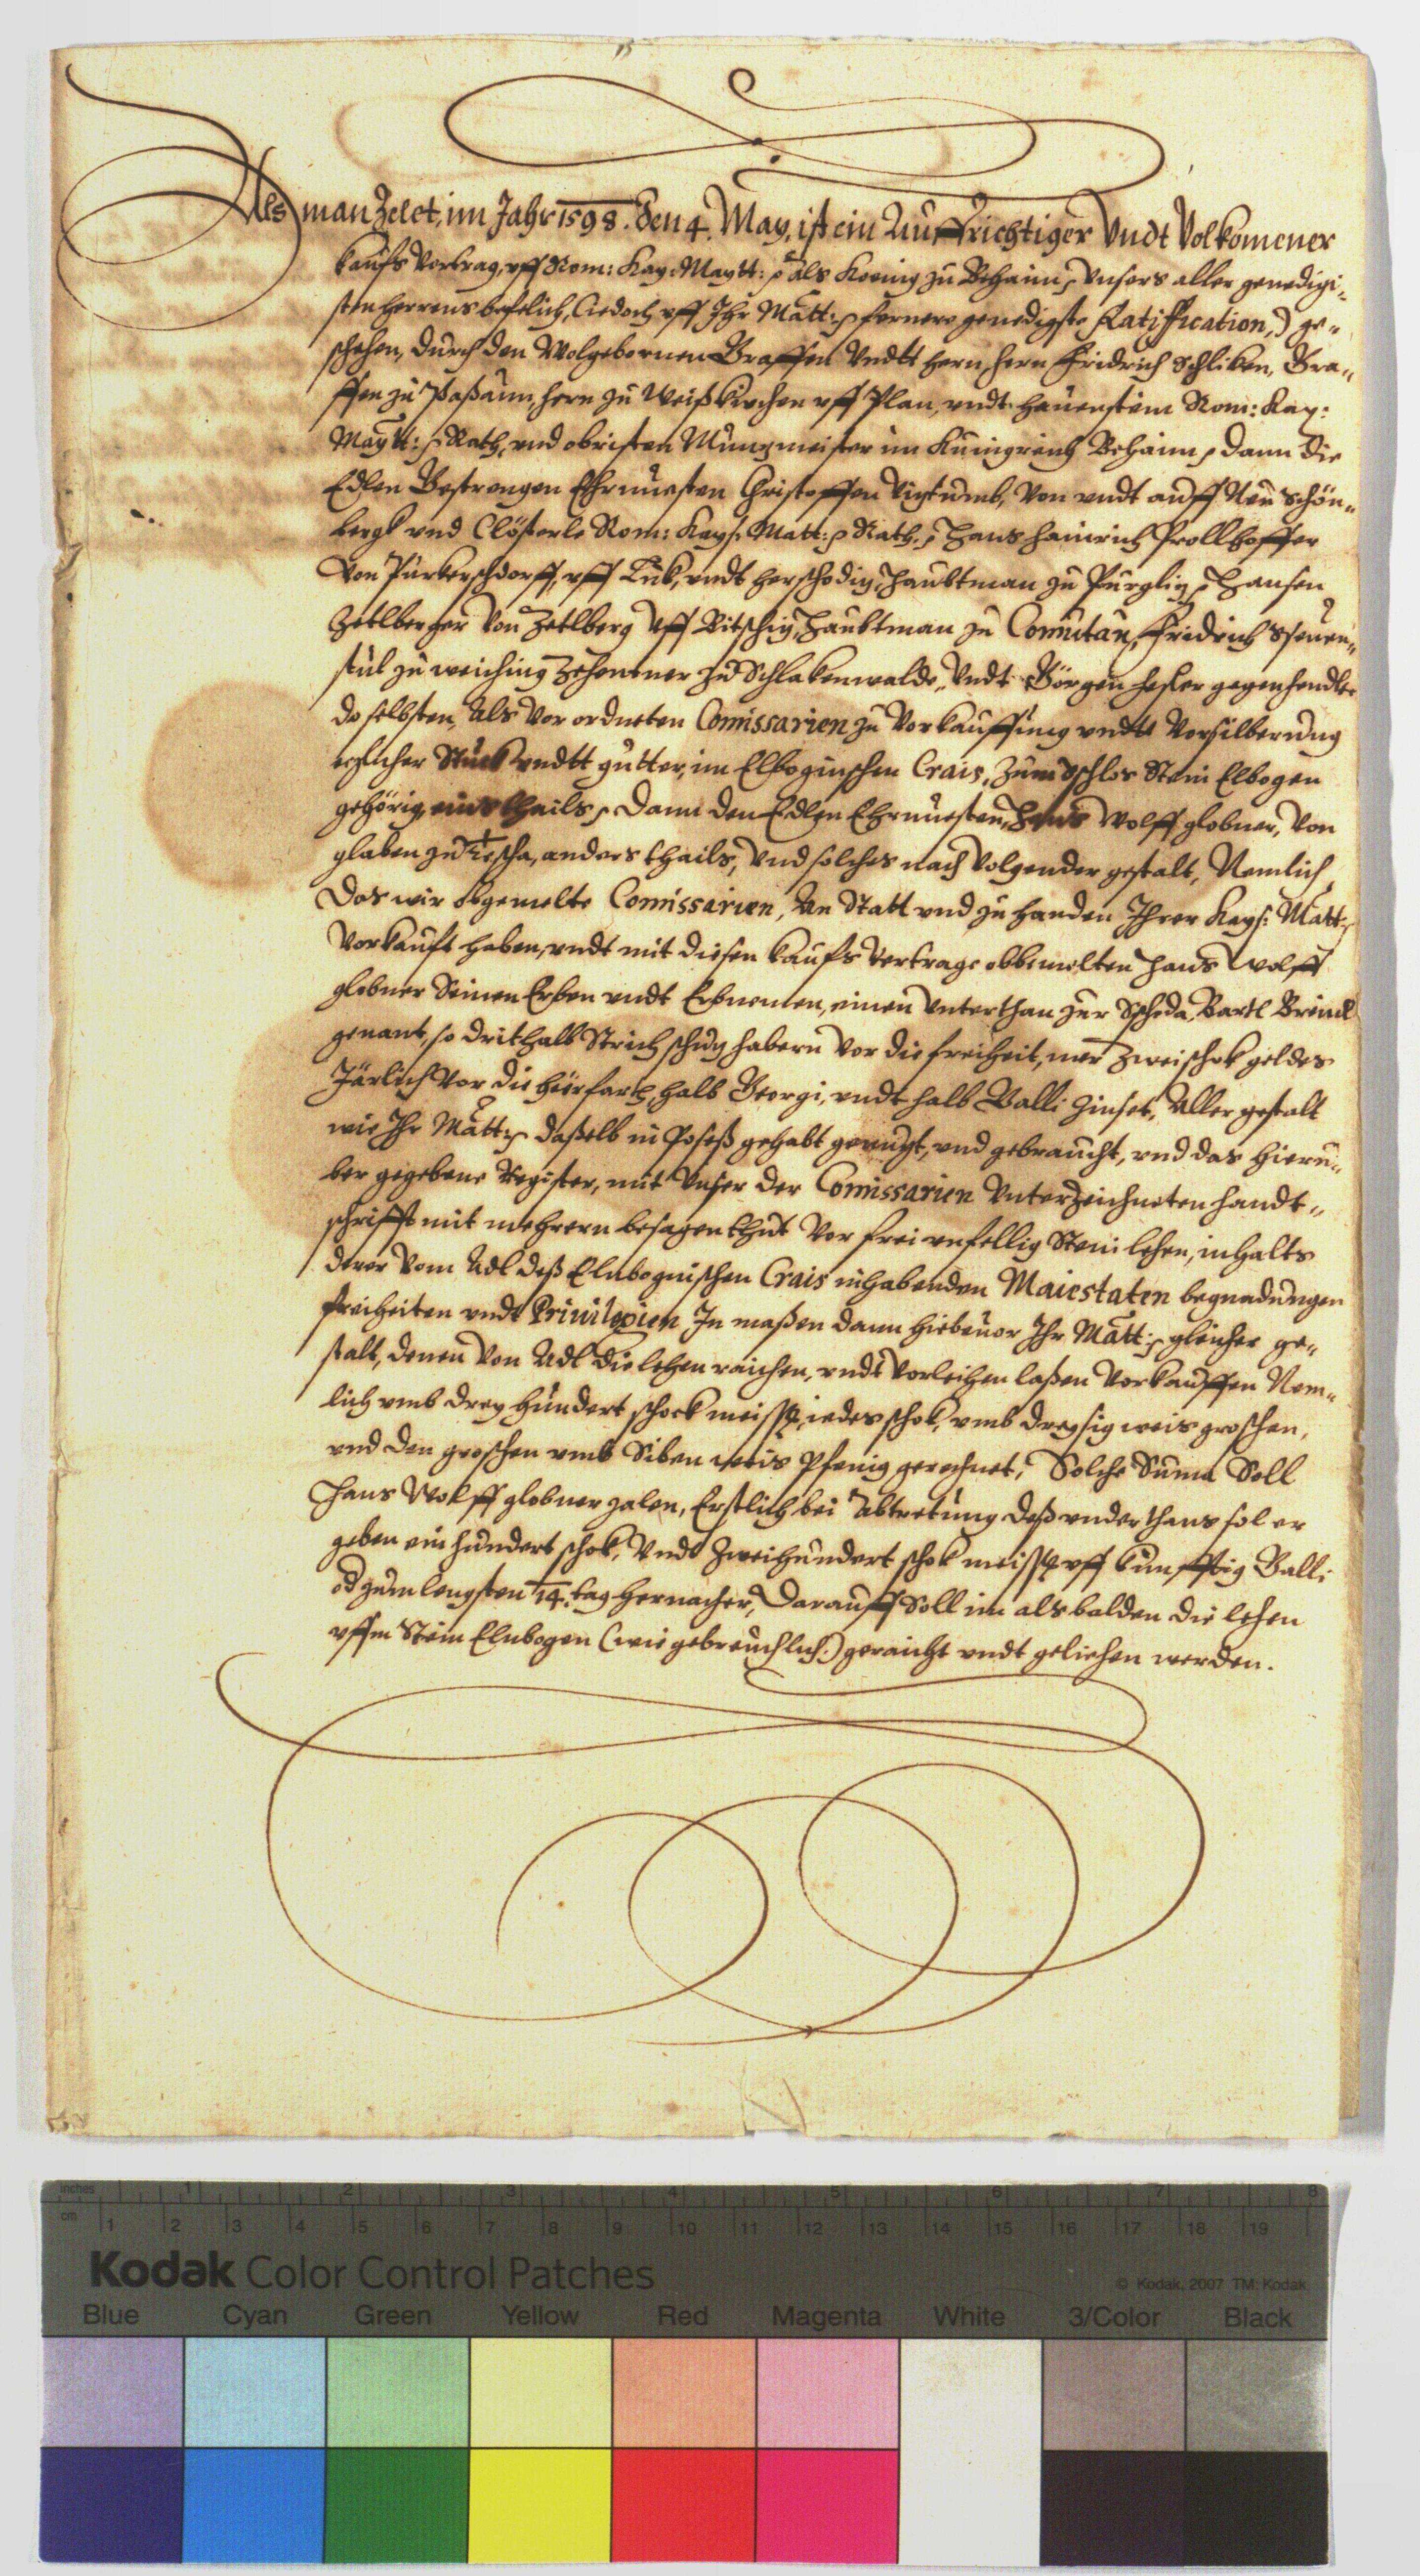 Als man Zelet, im Jahr 1598. den 4. May, ist ein Auffrichtiger Vndt Volkomener
kaufs Vortrag, vff Rom: Kay: Maytt: als Koenig zu Behaim, Vnsers aller genedigi„
sten herrens befelich, (iedoch vff Ihr Matt: fernere genedigste Ratiffication,) ge„
schehen, durch den Wolgebornen Graffen Vndtt hern, hern Fridrich Schliken, Gra„
ffen zu Paßaun, hern zu Weißkirchen vff Plan, vndt hauenstein Rom: Kay:
Maytt: Rath, vnd obristen Muntzmeister im Kunigreich Behaim, dann die
Edlen Gestrengen Ehrnuesten Christoffen Vigtumb, Von vndt auff Neu Schön„
bergk vnd Clösterle Rom: Kays: Matt: Rath, Hans Hainrich Prollhoffer
Von Purkerschdorff, vff Luk, vndt herschodiz, Haubtman zu Purgliz, Hansen
Zetlberger Von Zetlberg Vff Bitschiz, Haubtman zu Comutau, Fridrich
stul zu weiching Zehentner zu Schlakenwalde, Vndt Görgen hesler gegenhendler
doselbsten, Als Vor ordneten Comissarien zu Vorkauffung vndtt Versilberung
etzlicher Stuck vndtt gutter, im Elboginschen Crais, Zum Schlos Stein Elbogen
gehörig, eins thails, Dann den Edlen Ehrnuesten, Hans Wolff globner, Von
globen zu anders thails, Vnd solches nach Volgender gestalt, Nemlich
Das wir obgemelte Comissarien, An Statt vnd zu handen Ihrer Kays: Matt:
Vorkauft haben, vndt mit diesen kaufs Vertrage obbemelten Hans Wolff
globner Seinen Erben vndt Erbnemen, einen Vnterthan zur Scheda, Bartl
genant, so drithalb Strich habern Vor die freiheit, mer Zwei schok geldes
Järlich Vor die halb Georgi, vndt halb Galli Zinset, Aller gestalt
wie Ihr Matt: daßelb in Poseß gehabt genutzt, vnd gebraucht, vnd das hieru„
ber gegebene Register, mit Vnser der Comissarien Vnterzeichneten handt„
schrifft mit mehrern besagen thut Vor frei vnfellig Stein lehen, inhalts
derer Vom Adl deß Elnbognischen Crais inhabenden Maiestaten begnadungen
freiheiten vndt Priuilegien In maßen dann hiebeuor Ihr Matt: gleicher ge„
stalt, denen Von Adl die lehen raichen, vndt Vorleihen laßen Vorkauffen Nem„
lich vmb drey hundert schock meiss, iedes schok, vmb dreysig weis groschen,
vnd den groschen vmb Siben weis Pfenig gerechnet, Solche Suma Soll
Hans Wolff globner zalen, Erstlich bei Abtretung deß vnderthans sol er
geben ein hundert schok, Vndt Zweihundert schok meiss vff kunfftig Galli
od zum lengsten 14. tag hernacher, Darauff Soll im als balden die lehen
vffm Stein Elnbogen (wie gebreuchlich:) geraicht vndt geliehen werden.
inches 1 2 3 4 5 6 7 8
cm 1 2 3 4 5 6 7 8 9 10 11 12 13 14 15 16 17 18 19
Kodak Color Control Patches
© Kodak, 2007 TM: Kodak
Blue Cyan Green Yellow Red Magenta White 3/Color Black